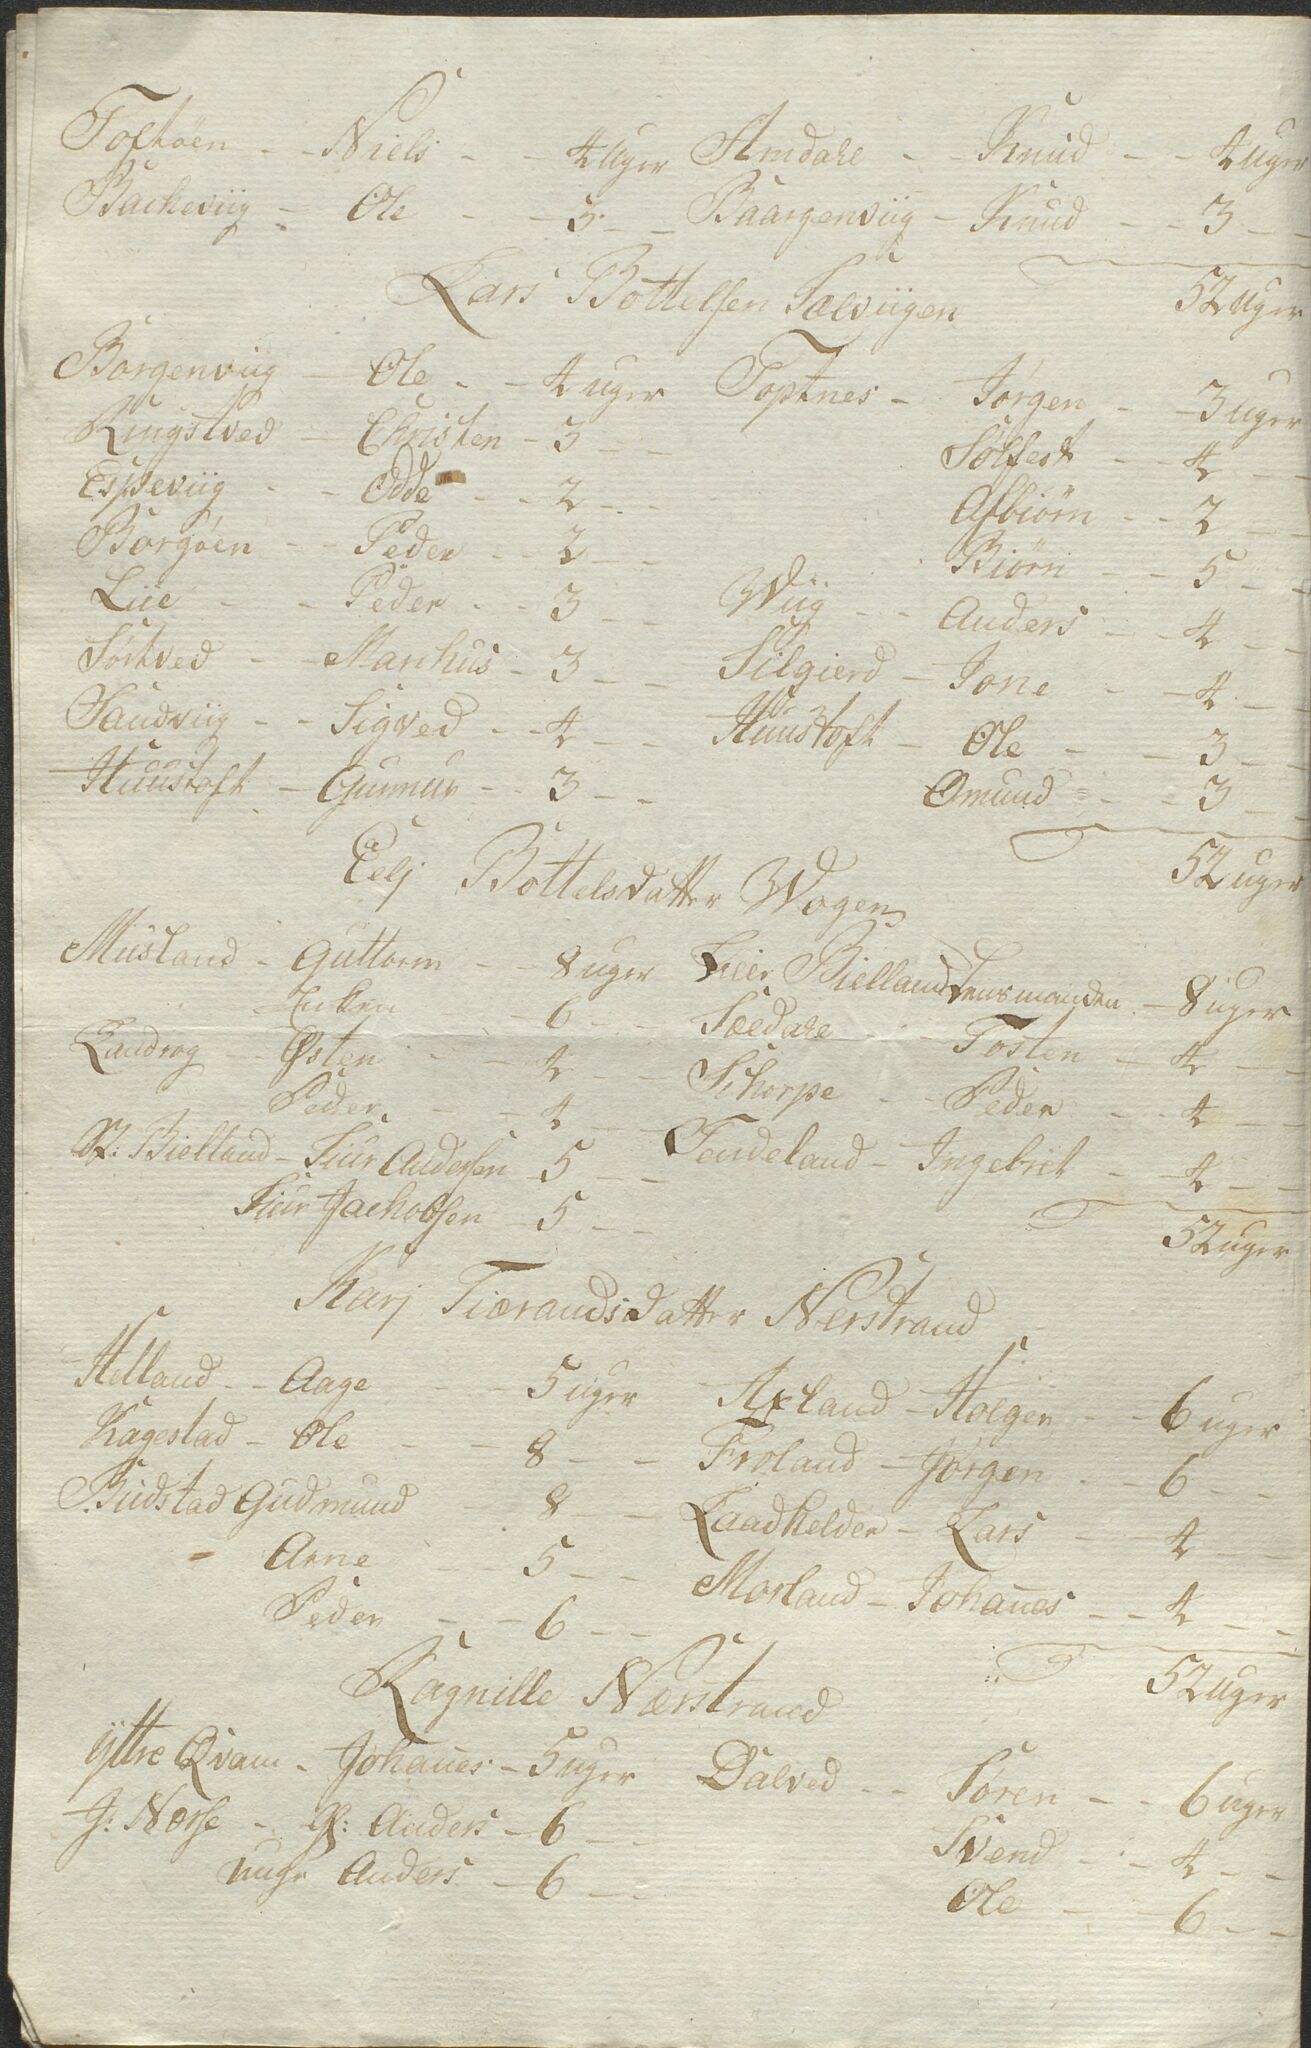 Toftøen - - Niels - - 4 Uger Amdale - - Knud - - 4 uger
Backeviig - Ole - - 5 - - Baargenviig - Knud - - 3 - -
Lars Bottelsen Sælviigen 52 Uger
Borgenviig - Ole - - 4 uger Toptnes - Jørgen - - 3 uger
Ringstved - Christen - 3 - - Sølfest - - 4 - -
Espeviig - - Odde - - 2 - - Asbiørn - - 2 - -
Borgøen - - Peder - - 2 - - Biørn - - 5 - -
Liie - - Peder - - 3 - - Wiig - - Anders - - 4 - -
Sørtved - - Markus - 3 - - Silgierd - Jone - - 4 - -
Sandviig - - Sigved - - 4 - - Huustoft - Ole - - 3 - -
Huustoft - Gunnur - - 3 - - Omund - - 3 - -
Eelj Bottelsdatter Wogen 52 uger
Musland - Guttorm - - 8 uger Bielland Lensmanden - 8 uger
Enken - 6 - - Sædale - - Tosten - 4 - -
Landrog - Østen - - 4 - - Skorpe - - Peder - - 4 - -
Peder - - 4 - - Tendeland - Ingebret - 4 - -
Bielland - Siur Andersen 5 - -
Siur Jachobsen - 5 - - 52 uger
Karj Tiørandsdatter Nerstrand
Helland - - Aage - - 5 uger Axland - Holgier - - 6 uger
Kagestad - Ole - - 8 - - Frøland - Jørgen - - 6 - -
Budstad Gudmund - 8 - - Laadkelder - Lars - 4 - -
Arne - - 5 - - Morland - Johanes - - 4 - -
Peder - - 6 - -
Ragnille Nerstrand 52 Uger
Yttre Qvam - Johanes - 5 uger Dalved - - Søren - - 6 uger
J: Nærse - Gl: Anders - 6 - - Svend - - 4 - -
unge Anders - 6 - - Ole - - 6 - -